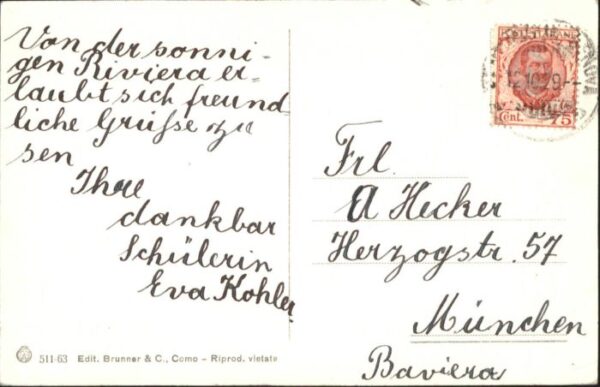 Von der sonni-
gen Riviera er-
laubt sich freund
liche Grüße zu
sen
Ihre
dankbar
Schülerin
Eva Kohler
Frl.
A Hecker
Herzogstr. 57
München
Baviera
12.10.29
Cent. 75
511-63 Edit. Brunner & C., Como - Riprod. vietata